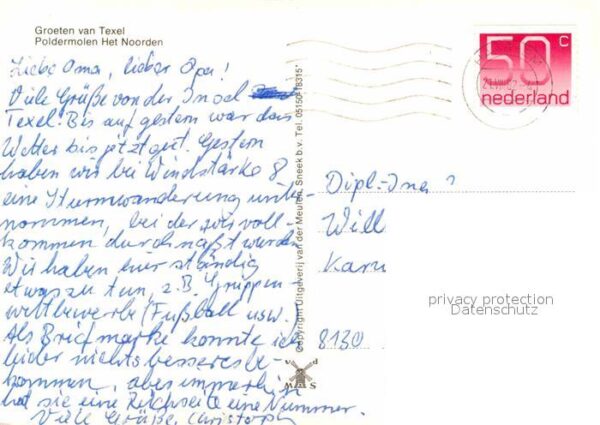 Groeten van Texel
Poldermolen Het Noorden
Liebe Oma, lieber Opa!
Viele Grüße von der Insel
Texel! Bis auf gestern war das
Wetter bis jetzt gut. Gestern
haben wir bei Windstärke 8
eine Sturmwanderung unter-
nommen, bei der wir voll-
kommen durchnäßt wurden.
Wir haben hier ständig
etwas zu tun, z.B. Gruppen-
wettbewerbe (Fußball usw.)
Als Briefmarke konnte ich
leider nichts besseres be-
kommen, aber immerhin
hat sie eine Reichseite eine Nummer.
Viele Grüße, Christoph
Copyright Uitgeverij van der Meulen, Sneek b.v. Tel. 05150-18315*
v d
M S
50 c
nederland
Dipl.-Ing
Will
Karu
8130
privacy protection
Datenschutz